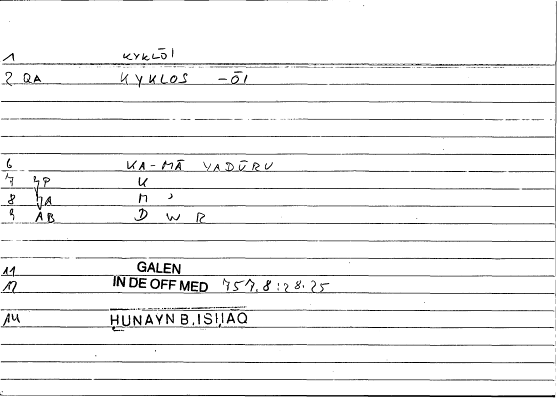 1 KYKLŌI
2 QA KYKLOS -ŌI
6 KA-MĀ YADŪRU
7 4P K
8 4A M ʾ
9 AB D W R
11 GALEN
12 IN DE OFF MED 757,8:28.25
14 ḤUNAYN B.ISḤAQ